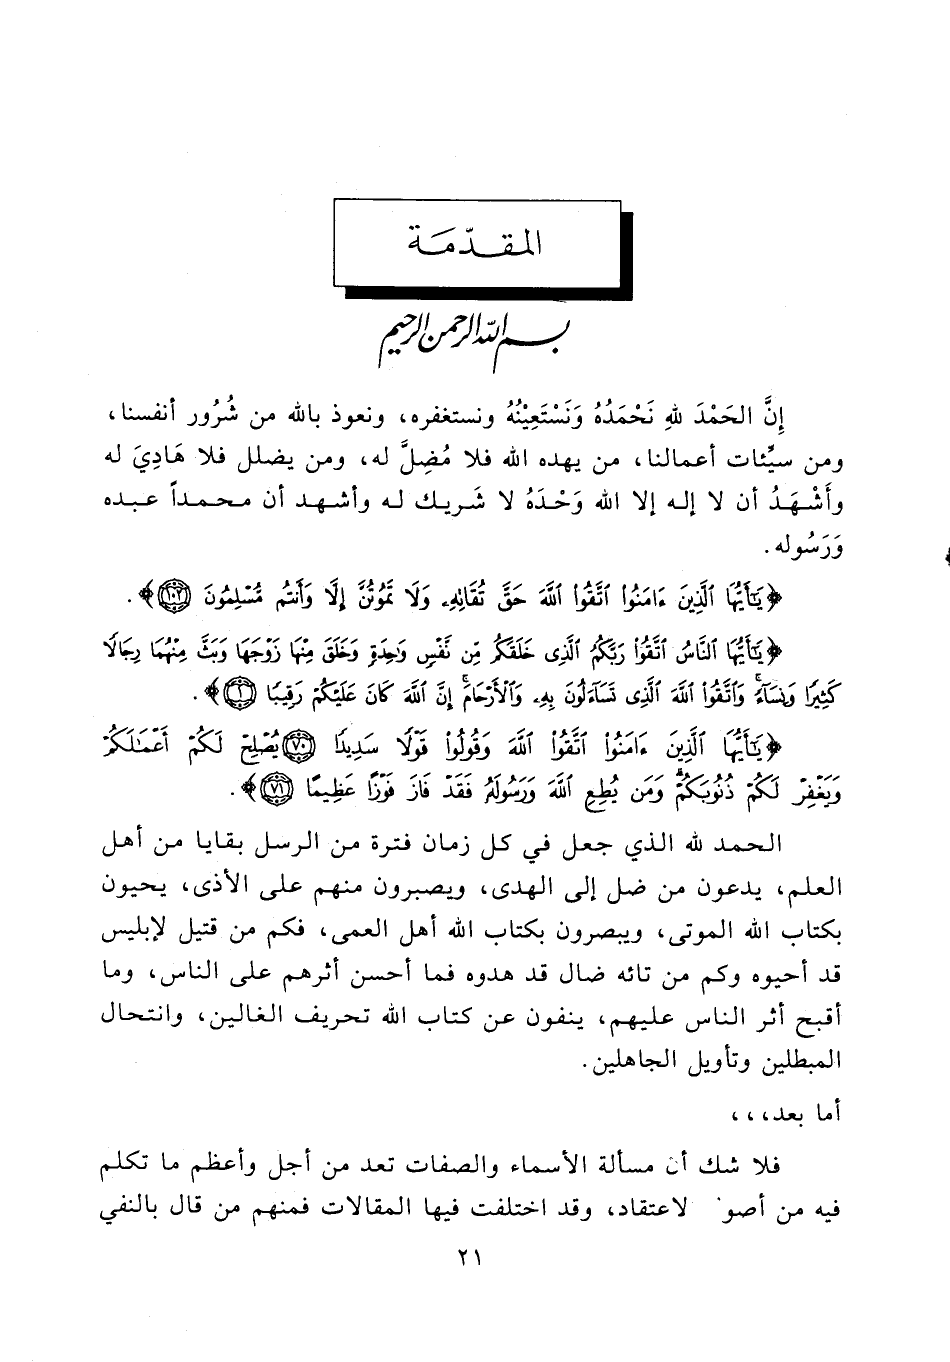 المقدّمَة
بسم الله الرحمن الرحيم
إِنَّ الحَمْدَ للهِ نَحْمَدُهُ وَنَسْتَعِيْنُهُ ونستغفره، ونعوذ بالله من شُرُور أنفسنا،
ومن سيِّئات أعمالنا، من يهده الله فلا مُضِلَّ له، ومن يضلل فلا هَادِيَ له
وأَشْهَدُ أن لا إله إلا الله وَحْدَهُ لا شَريك له وأشهد أن محمداً عبده
وَرَسُوله.
﴿يَٰٓأَيُّهَا ٱلَّذِينَ ءَامَنُوا۟ ٱتَّقُوا۟ ٱللَّهَ حَقَّ تُقَاتِهِۦ وَلَا تَمُوتُنَّ إِلَّا وَأَنتُم مُّسْلِمُونَ ١٠٢﴾.
﴿يَٰٓأَيُّهَا ٱلنَّاسُ ٱتَّقُوا۟ رَبَّكُمُ ٱلَّذِى خَلَقَكُم مِّن نَّفْسٍ وَٰحِدَةٍ وَخَلَقَ مِنْهَا زَوْجَهَا وَبَثَّ مِنْهُمَا رِجَالًا
كَثِيرًا وَنِسَآءً ۚ وَٱتَّقُوا۟ ٱللَّهَ ٱلَّذِى تَسَآءَلُونَ بِهِۦ وَٱلْأَرْحَامَ ۚ إِنَّ ٱللَّهَ كَانَ عَلَيْكُمْ رَقِيبًا ١﴾.
﴿يَٰٓأَيُّهَا ٱلَّذِينَ ءَامَنُوا۟ ٱتَّقُوا۟ ٱللَّهَ وَقُولُوا۟ قَوْلًا سَدِيدًا ٧٠ يُصْلِحْ لَكُمْ أَعْمَٰلَكُمْ
وَيَغْفِرْ لَكُمْ ذُنُوبَكُمْ ۗ وَمَن يُطِعِ ٱللَّهَ وَرَسُولَهُۥ فَقَدْ فَازَ فَوْزًا عَظِيمًا ٧١﴾.
الحمد لله الذي جعل في كل زمان فترة من الرسل بقايا من أهل
العلم، يدعون من ضل إلى الهدى، ويصبرون منهم على الأذى، يحيون
بكتاب الله الموتى، ويبصرون بكتاب الله أهل العمى، فكم من قتيل لإبليس
قد أحيوه وكم من تائه ضال قد هدوه فما أحسن أثرهم على الناس، وما
أقبح أثر الناس عليهم، ينفون عن كتاب الله تحريف الغالين، وانتحال
المبطلين وتأويل الجاهلين.
أما بعد،،،
فلا شك أن مسألة الأسماء والصفات تعد من أجل وأعظم ما تكلم
فيه من لاعتقاد، وقد اختلفت فيها المقالات فمنهم من قال بالنفي
٢١